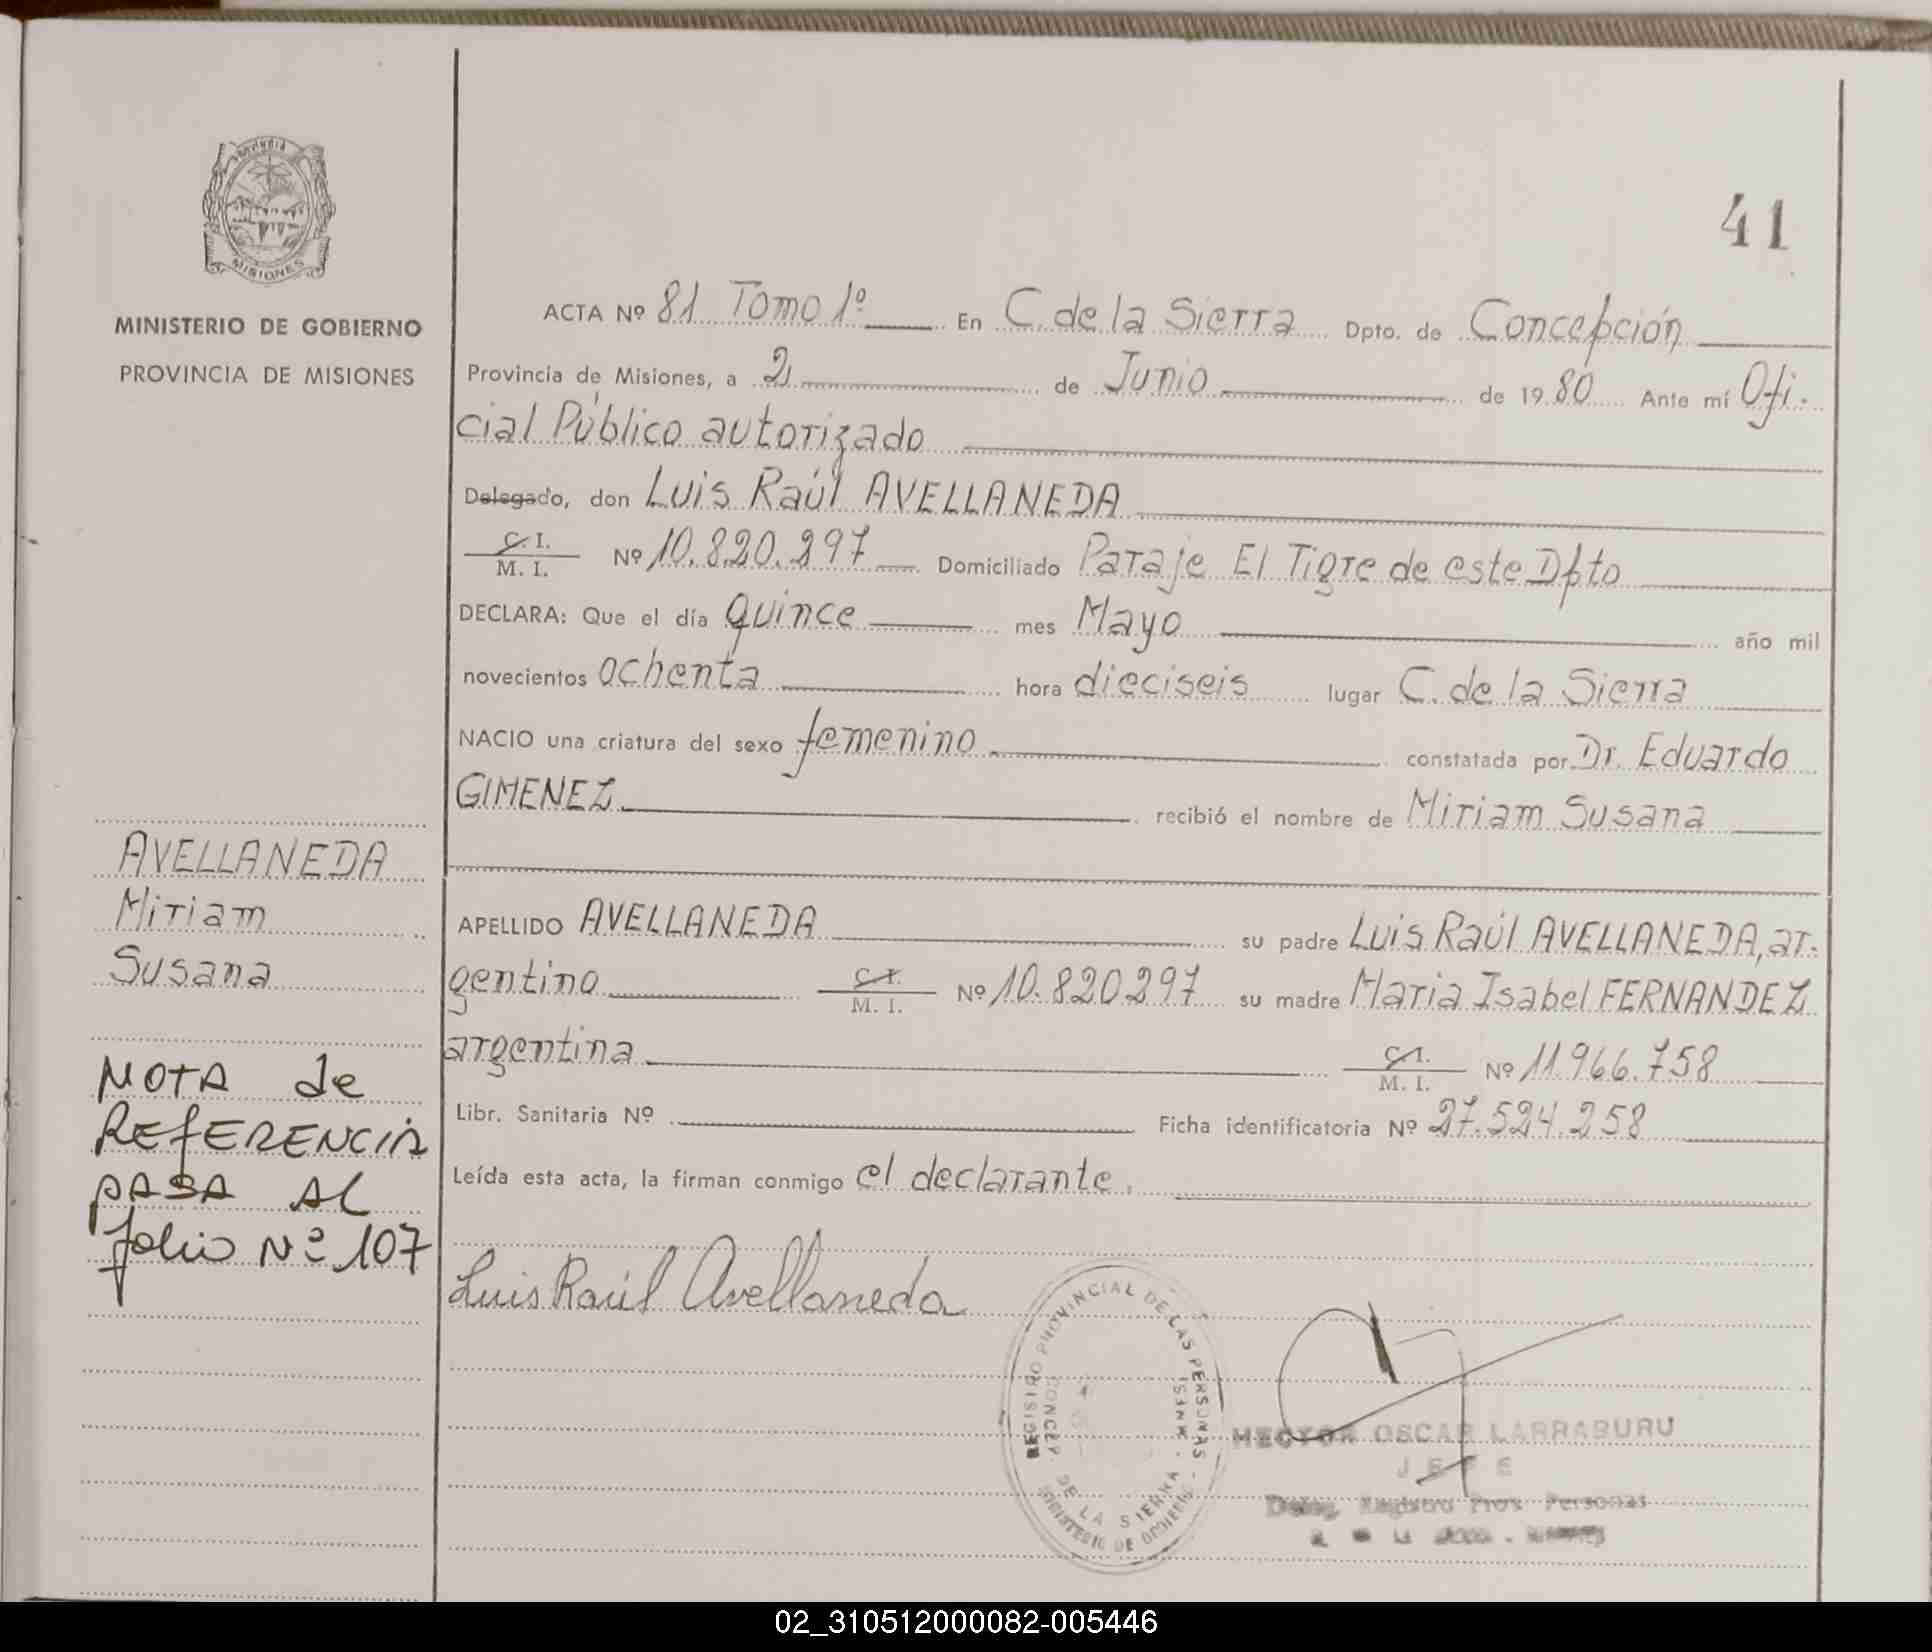 Provincia
MISIONES
MINISTERIO DE GOBIERNO
PROVINCIA DE MISIONES
41
ACTA Nº 81 Tomo 1º En C. de la Sierra Dpto. de Concepción
Provincia de Misiones, a 2 de Junio de 1980 Ante mí Ofi-
cial Público autorizado
Delegado, don Luis Raúl AVELLANEDA
C. I.
M. I. Nº 10.820.297 Domiciliado Paraje El Tigre de este Dpto
DECLARA: Que el día quince mes Mayo año mil
novecientos ochenta hora dieciseis lugar C. de la Sierra
NACIO una criatura del sexo femenino constatada por Dr. Eduardo
GIMENEZ recibió el nombre de Miriam Susana
APELLIDO AVELLANEDA su padre Luis Raúl AVELLANEDA, ar-
gentino C. I.
M. I. Nº 10.820.297 su madre Maria Isabel FERNANDEZ
argentina C. I.
M. I. Nº 11.966.758
Libr. Sanitaria Nº Ficha identificatoria Nº 27.524.258
Leída esta acta, la firman conmigo el declarante.
Luis Raúl Avellaneda
AVELLANEDA
Miriam
Susana
NOTA de
REFERENCIA
PASA AL
folio Nº 107
REGISTRO PROVINCIAL DE LAS PERSONAS
CONCEP. DE LA SIERRA - MNES.
MINISTERIO DE GOBIERNO
HECTOR OSCAR LARRABURU
JEFE
Deleg. Registro Prov. Personas
02_310512000082-005446